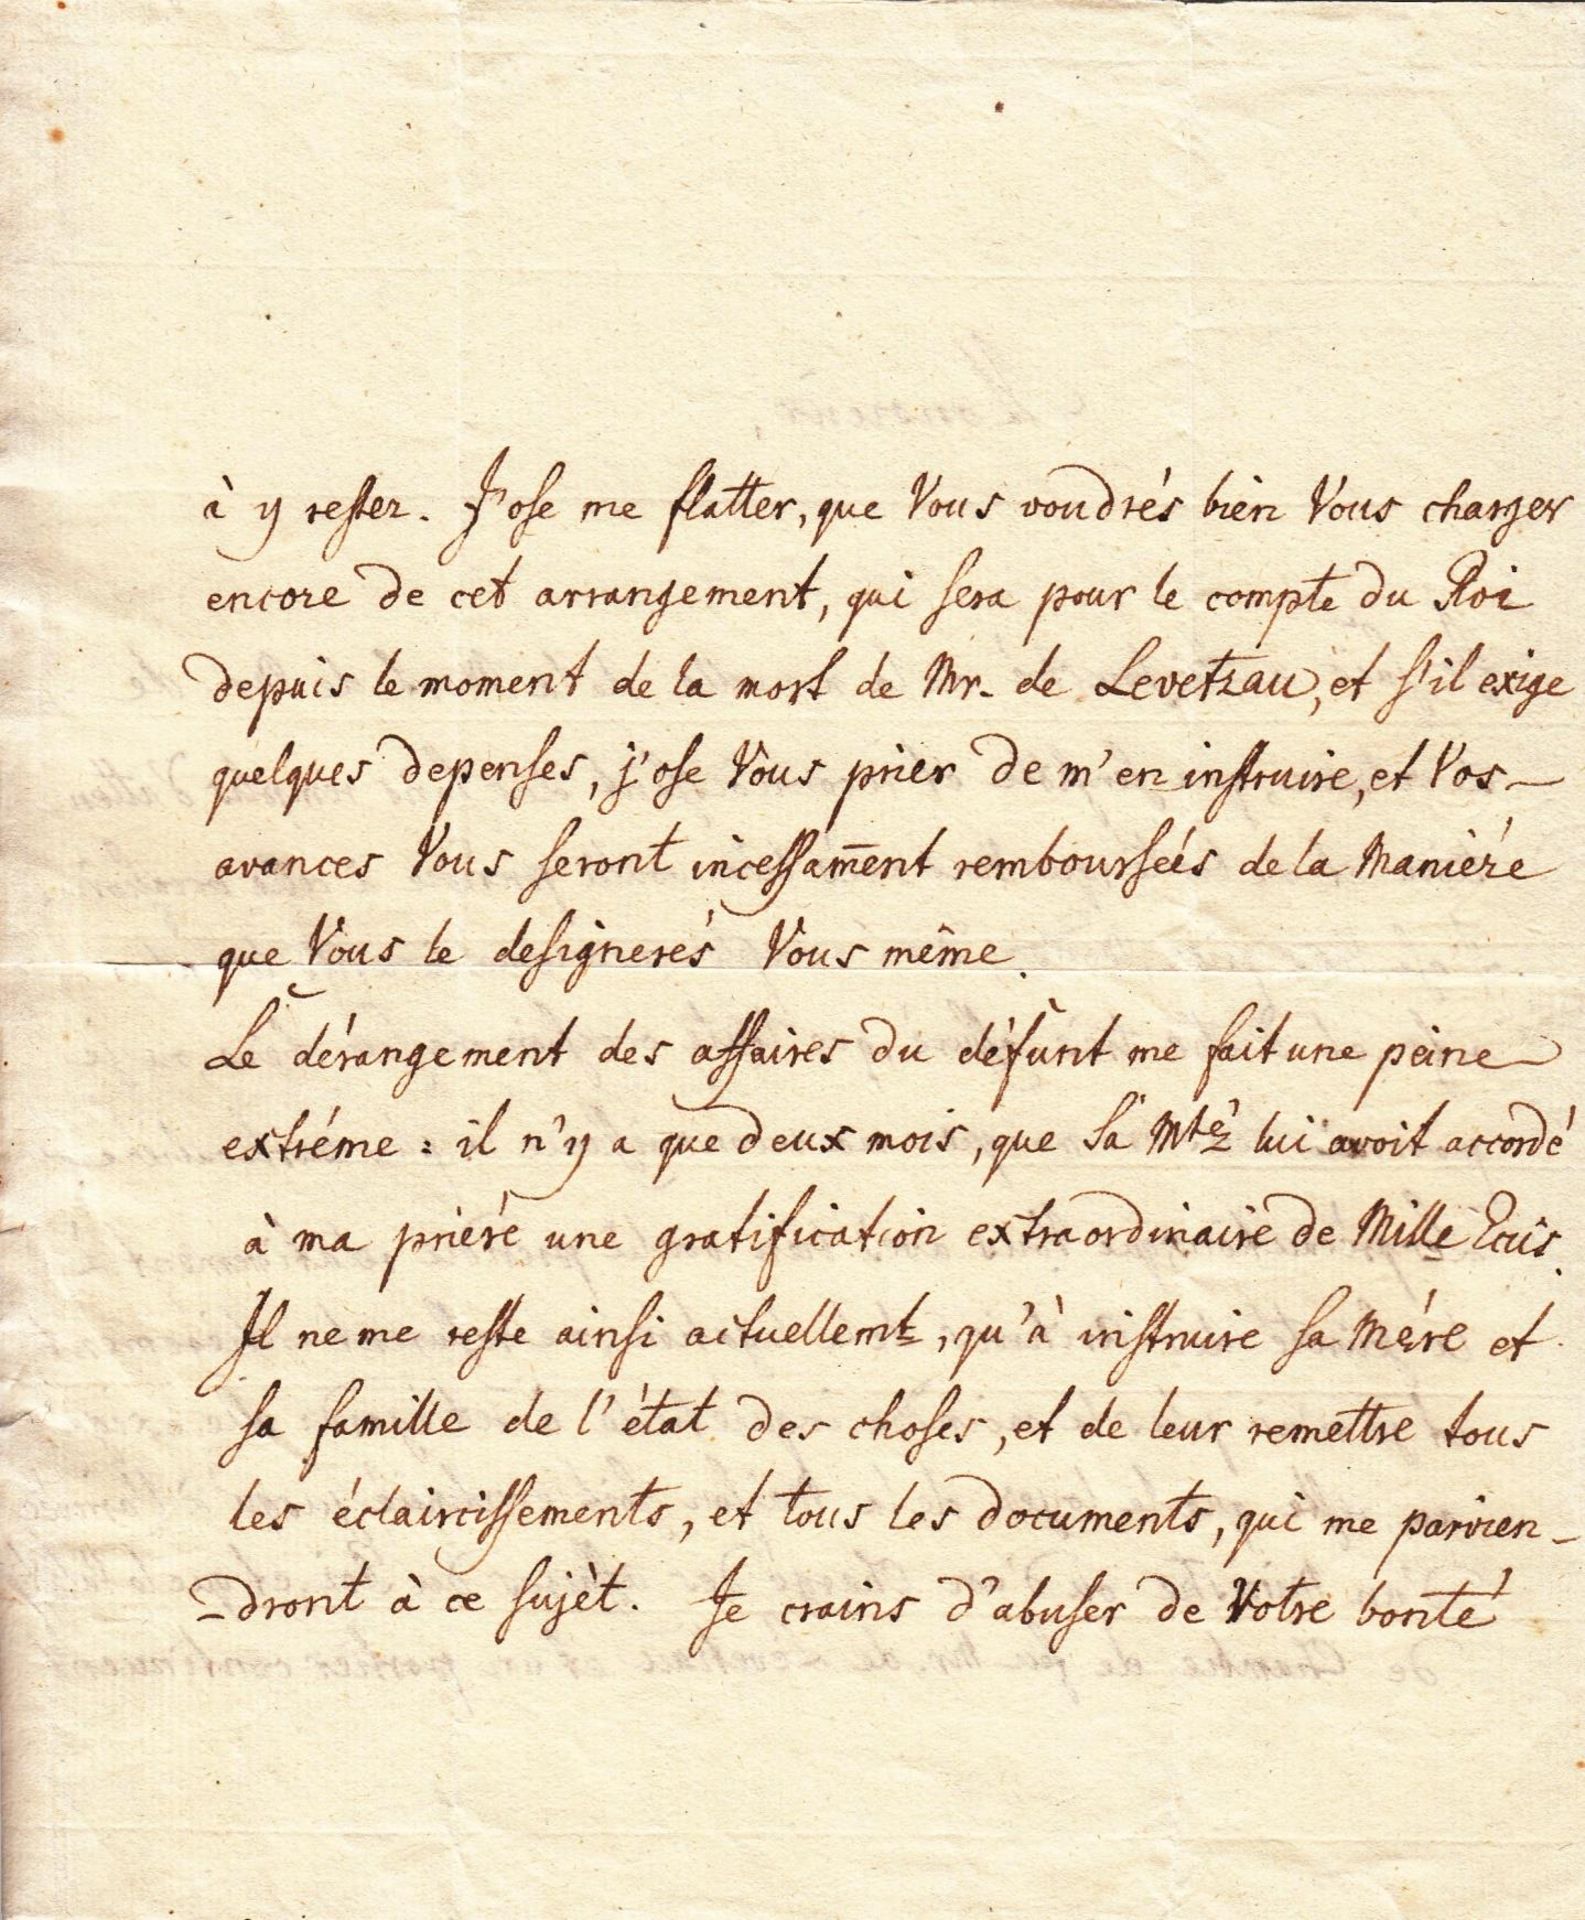 à y rester. J'ose me flatter, que Vous voudrés bien Vous charger
encore de cet arrangement, qui sera pour le compte du Roi
depuis le moment de la mort de Mr. de Levetzau, et s'il exige
quelques depenses, j'ose Vous prier de m'en instruire, et Vos
avances Vous seront incessam̄ent rembourseés de la Maniére
que Vous le designerés Vous même.
Le dérangement des affaires du défunt me fait une peine
extréme : il n'y a que deux mois, que Sa Mté lui avoit accordé
à ma priere une gratification extraordinaire de Mille Ecus.
Il ne me reste ainsi actuellemt, qu'à instruire sa Mére et
sa famille de l'état des choses, et de leur remettre tous
les éclaircissements, et tous les documents, qui me parvien-
-dront à ce sujèt. Je crains d'abuser de Votre bonté